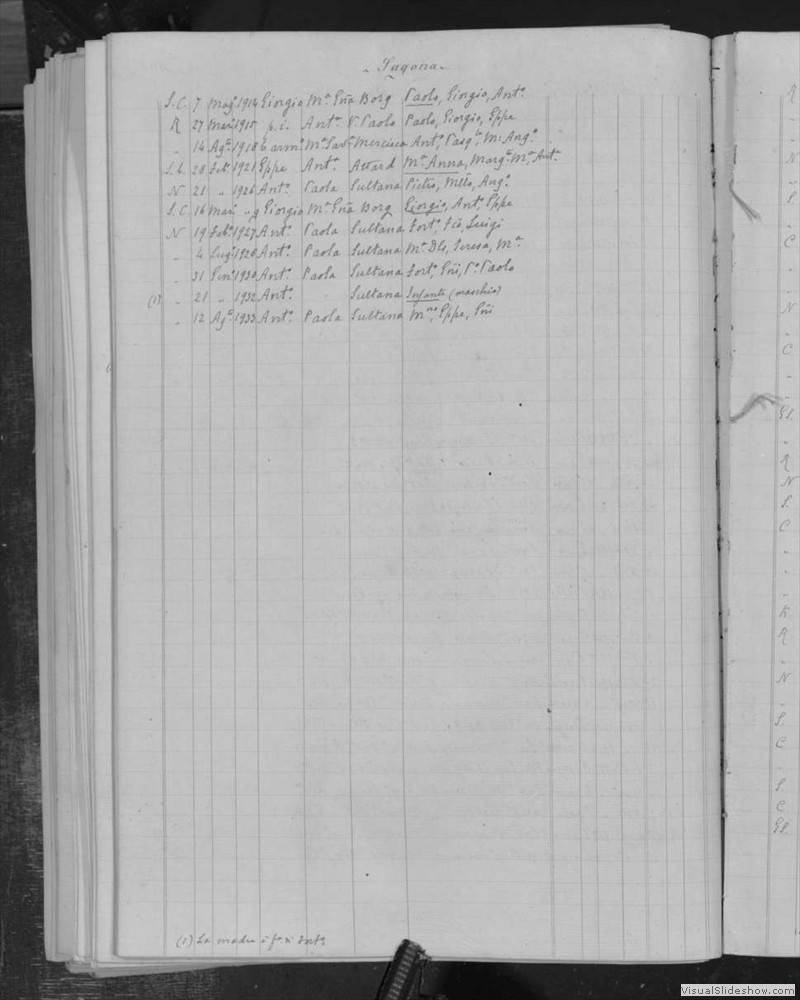 Sagona
S.C. 7 Mag. 1914 Giorgio Mª Gña Borg Paolo, Giorgio, Antº
R 27 Mar. 1915 p.i. Antº Paolo, Giorgio, Eppe
" 14 Agº 1918 Carmº Mª Savª Mercieca Antº, Pasqle
S.C. 28 Feb. 1921 Eppe Antº Attard Mª Anna, Margª Mª, Antª
N 21 " 1926 Antº Paola Sultana Pietro, Antº
S.C. 16 Mar. " Giorgio Mª Gña Borg Giorgio, Antº, Eppe
N 19 Feb. 1927 Antº Paola Sultana Fortº, Luigi
" 4 1928 Antº Paola Sultana Mª Dls, Teresa, Mª
" 31 Genº 1930 Antº Paola Sultana Fortº, Gñi, Paolo
(1) " 21 " 1932 Antº Sultana Infante (maschio)
" 12 Agº 1933 Antº Paola Sultana Eppe, Gñi
(1) La madre è
R
N
S.
C
N
C
Gl.
R
N
S.
C
K
R
N
S.
C
S
C
Gl.
VisualSlideshow.com